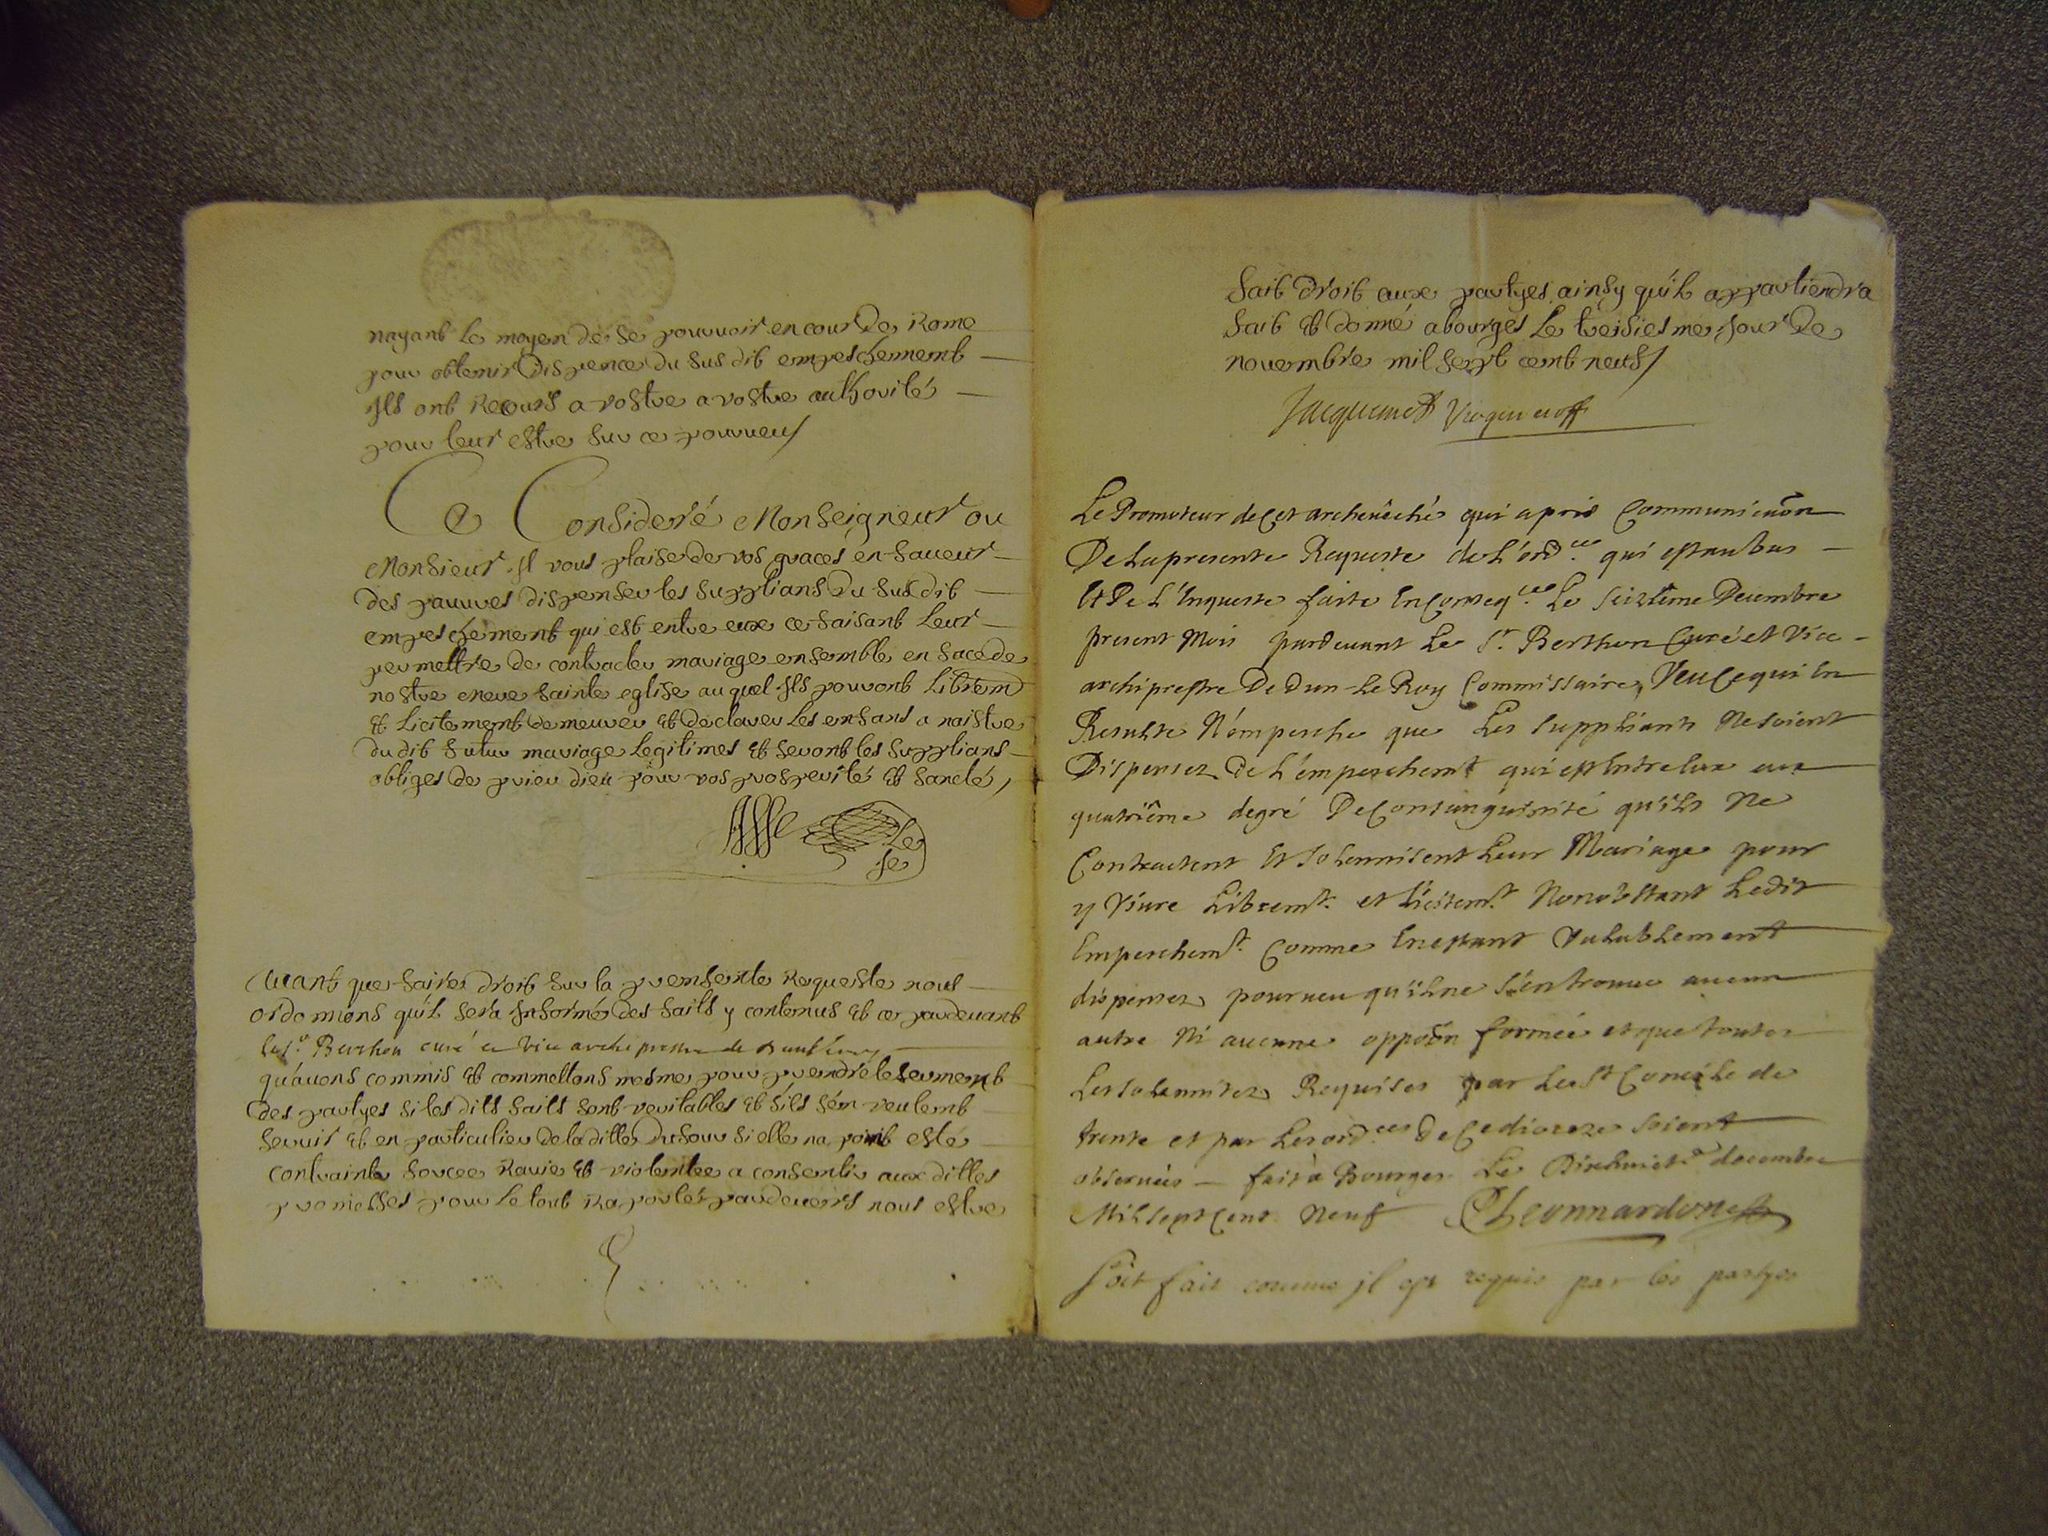 nayant le moyen de se pourvoir en cour de Rome
pour obtenir dispence du sus dit empeschement
Ils ont recours a vostre a vostre authorité
pour leur estre sur ce pourveu
Ce Consideré Monseigneur ou
Monsieur Il vous plaise de vos graces en faveur
des pauvres dispenser les supplians du sus dit
empeschement qui est entre eux ce faisant leur
permettre de contracter mariage ensemble en face de
nostre mere sainte eglise auquel Ils pouront librem
et licitement demeurer et declarer les enfans a naistre
du dit futur mariage legitimes et seront les supplians
obliges de prier dieu pour vos prosperité et sancté
Avant que faire droit sur la presente Requeste nous
ordonnons qu'il sera Informé des faits y contenus et ce pardevant
le sr Berthon curé et vice archiprestre de
qu'avons commis et commettons mesme pour prendre le serment
des partyes si les dits faits sont veritables et s'ils s'en veulent
servir et en particulier de la ditte Dufour si elle na point esté
contrainte forcee Ravie et violentee a consentir aux dittes
promesses pour le tout Raporté pardevers nous estre
fait droit aux partyes ainsy qu'il appartiendra
fait et donné a bourges le treisiesme jour de
novembre mil sept cent neuf
Jacquemet
Le Promoteur de Cet archevêché qui a pris Communicaon
De la presente Requeste de l'ordce qui est au bas
Et De l'Enqueste faite En Conseqce Le seizième Decembre
present Mois pardevant Le Sr Berthon Curé et Vice
archiprestre De Dun Le Roy Commissaire, Veu Ce qui En
Resulte N'empesche que Les suppliants Ne soient
Dispensez De L'empeschemt qui est Entre Eux au
quatriême degré De Consanguinité qu'ils Ne
Contractent Et solennisent Leur Mariage pour
y Vivre Libremt et licitemt Nonobstant Ledit
Empeschemt Comme En estant Valablement
dispensez pourveu qu'il ne s'en trouve aucun
autre Ni aucune oppoon formée et que toutes
Les solennitez Requises par Le St Concile de
trente et par Les ordces De Ce dioceze soient
observées fait a Bourges Le Dixhuicte decembre
Mil sept Cent Neuf Leonnardon
Soit fait comme il est requis par les partyes